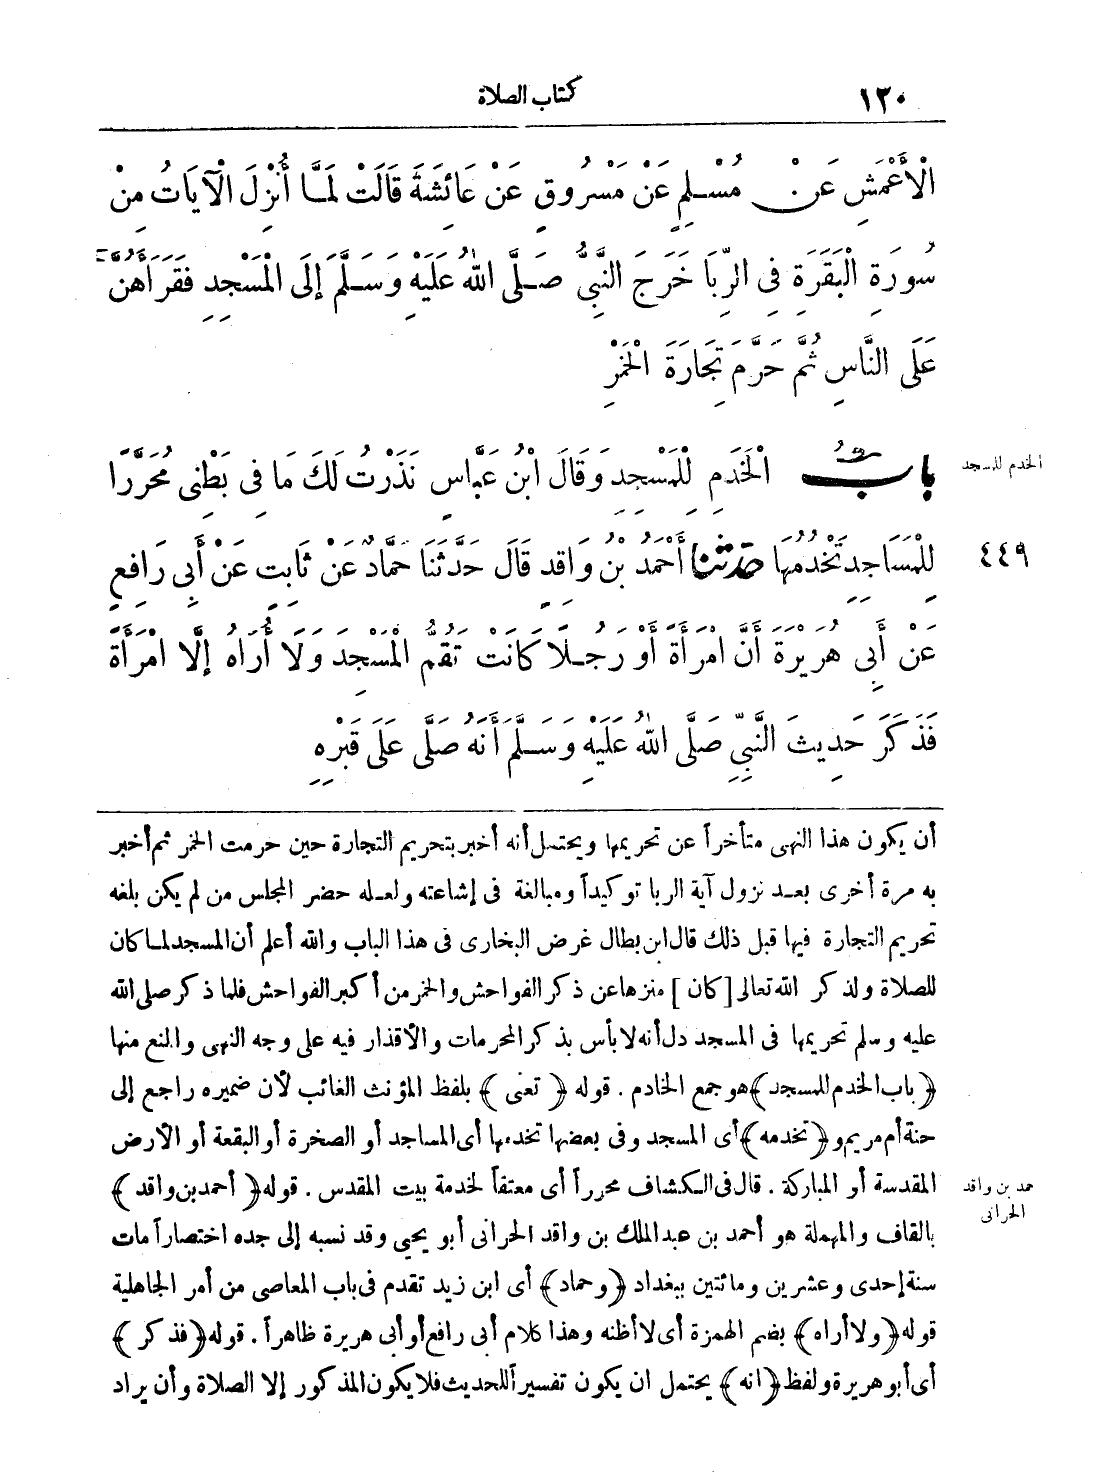 ١٢٠ كتاب الصلاة
الْأَعْمَشِ عَنْ مُسْلِمٍ عَنْ مَسْرُوقٍ عَنْ عَائِشَةَ قَالَتْ لَمَّا أُنْزِلَ الْآيَاتُ مِنْ
سُورَةِ الْبَقَرَةِ فِي الرِّبَا خَرَجَ النَّبِيُّ صَلَّى اللهُ عَلَيْهِ وَسَلَّمَ إِلَى الْمَسْجِدِ فَقَرَأَهُنَّ
عَلَى النَّاسِ ثُمَّ حَرَّمَ تِجَارَةَ الْخَمْرِ
بابُ الْخَدَمِ لِلْمَسْجِدِ وَقَالَ ابْنُ عَبَّاسٍ نَذَرْتُ لَكَ مَا فِي بَطْنِي مُحَرَّرًا
الخدم للمسجد
لِلْمَسَاجِدِ تَخْدُمُهَا حدثنا أَحْمَدُ بْنُ وَاقِدٍ قَالَ حَدَّثَنَا حَمَّادٌ عَنْ ثَابِتٍ عَنْ أَبِي رَافِعٍ
٤٤٩
عَنْ أَبِي هُرَيْرَةَ أَنَّ امْرَأَةً أَوْ رَجُلًا كَانَتْ تَقُمُّ الْمَسْجِدَ وَلَا أُرَاهُ إِلَّا امْرَأَةً
فَذَكَرَ حَدِيثَ النَّبِيِّ صَلَّى اللهُ عَلَيْهِ وَسَلَّمَ أَنَّهُ صَلَّى عَلَى قَبْرِهِ
أن يكون هذا النهى متأخراً عن تحريمها ويحتمل أنه أخبر بتحريم التجارة حين حرمت الخمر ثم أخبر
به مرة أخرى بعد نزول آية الربا توكيداً ومبالغة فى إشاعته ولعله حضر المجلس من لم يكن بلغه
تحريم التجارة فيها قبل ذلك قال ابن بطال غرض البخارى فى هذا الباب والله أعلم أن المسجد لما كان
للصلاة ولذكر الله تعالى [كان] منزها عن ذكر الفواحش والخمر من أكبر الفواحش فلما ذكر صلى الله
عليه وسلم تحريمها فى المسجد دل أنه لا بأس بذكر المحرمات والأقذار فيه على وجه النهى والمنع منها
﴿باب الخدم للمسجد﴾ هو جمع الخادم . قوله ﴿تعنى﴾ بلفظ المؤنث الغائب لأن ضميره راجع إلى
حنة أم مريم و﴿تخدمه﴾ أى المسجد وفى بعضها تخدمها أى المساجد أو الصخرة أو البقعة أو الأرض
المقدسة أو المباركة . قال فى الكشاف محرراً أى معتقاً لخدمة بيت المقدس . قوله ﴿أحمد بن واقد﴾
حمد بن واقد
الحرانى
بالقاف والمهملة هو أحمد بن عبد الملك بن واقد الحرانى أبو يحيى وقد نسبه إلى جده اختصاراً مات
سنة إحدى وعشرين ومائتين ببغداد ﴿وحماد﴾ أى ابن زيد تقدم فى باب المعاصى من أمر الجاهلية
قوله ﴿ولا أراه﴾ بضم الهمزة أى لا أظنه وهذا كلام أبى رافع أو أبى هريرة ظاهراً . قوله ﴿فذكر﴾
أى أبو هريرة ولفظ ﴿انه﴾ يحتمل ان يكون تفسيراً للحديث فلا يكون المذكور إلا الصلاة وأن يراد